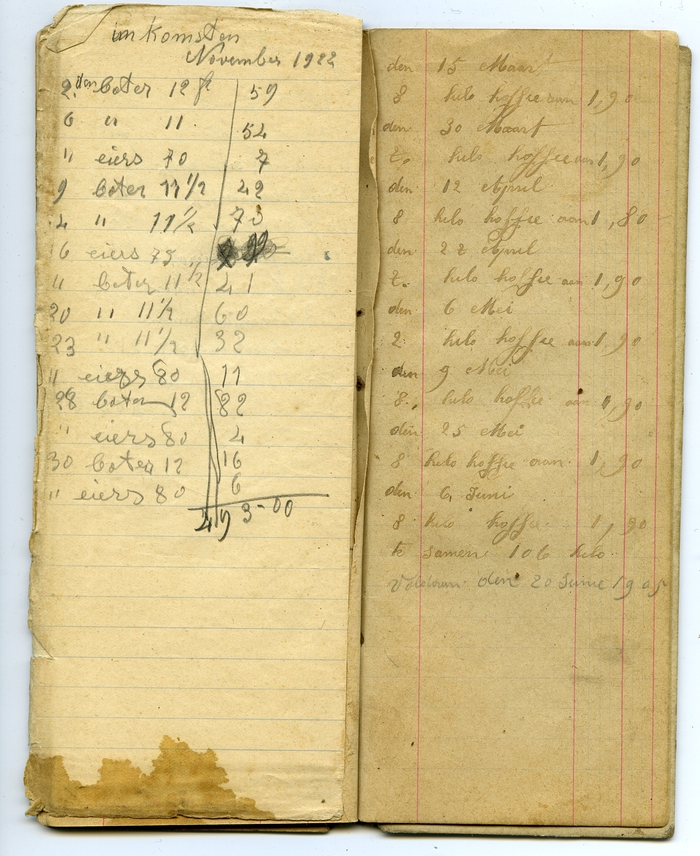 inkomsten
November 1922
2.den boter 12 fr 59
6 " 11 54
" eiers 70 7
9 boter 11 1/2 42
14 " 11 1/2 73
16 eiers 75
" boter 11 1/2 41
20 " 11 1/2 60
23 " 11 1/2 32
" eiers 80 11
28 boter 12 82
" eiers 80 4
30 boter 12 16
" eiers 80 6
3-00
den 15 Maart
8 kilo koffie aan 1,90
den 30 Maart
kilo koffie aan 1,90
den 12 April
8 kilo koffie aan 1,80
den 22 April
kilo koffie aan 1,90
den 6 Mei
2. kilo koffie aan 1,90
den 9 Mei
8., kilo koffie aan 1,90
den 25 Mei
8 kilo koffie aan 1,90
den 6 Juni
8 kilo koffie 1,90
te samen 106 kilo
den 20 June 1905